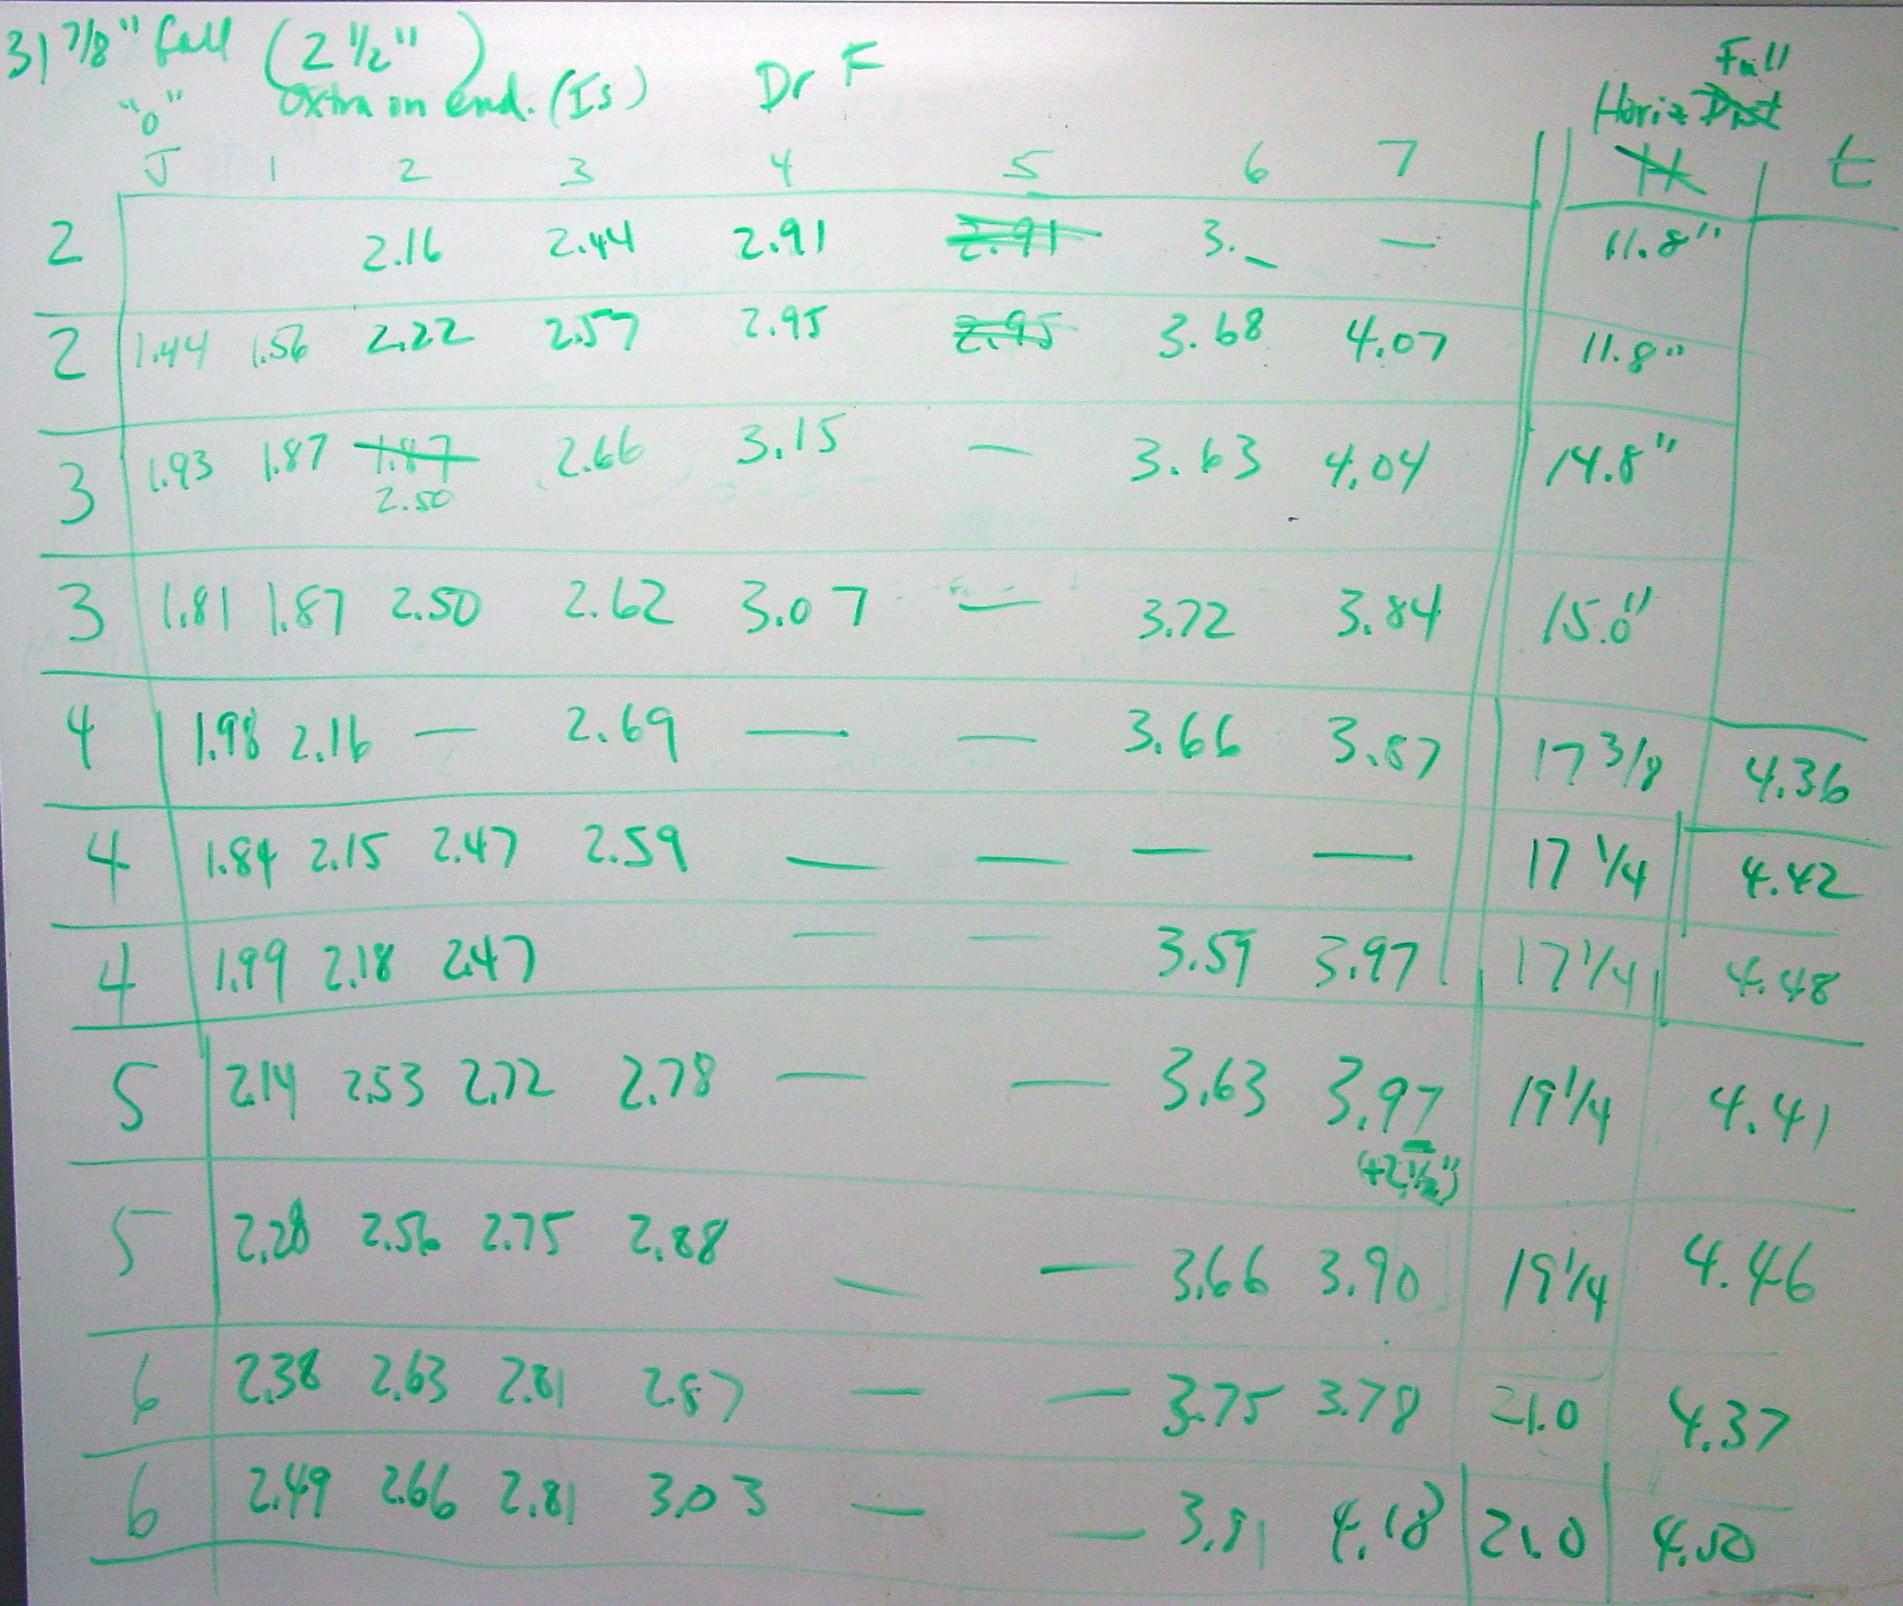 31 7/8" fall (2 1/2")
extra on end. (Is) Dr F
Full
Horiz Dist
"0"
J 1 2 3 4 5 6 7 H t
2 2.16 2.44 2.91 2.91 3._ — 11.8"
2 1.44 1.56 2.22 2.57 2.95 2.95 3.68 4.07 11.8"
3 1.93 1.87 1.87 2.66 3.15 — 3.63 4.04 14.8"
2.50
3 1.81 1.87 2.50 2.62 3.07 — 3.72 3.84 15.0"
4 1.98 2.16 — 2.69 — — 3.66 3.87 17 3/8 4.36
4 1.84 2.15 2.47 2.59 — — — — 17 1/4 4.42
4 1.99 2.18 2.47 — — 3.59 3.97 17 1/4 4.48
5 2.14 2.53 2.72 2.78 — — 3.63 3.97 19 1/4 4.41
(+2 1/2")
5 2.28 2.56 2.75 2.88 — — 3.66 3.90 19 1/4 4.46
6 2.38 2.63 2.81 2.87 — — 3.75 3.78 21.0 4.37
6 2.49 2.66 2.81 3.03 — — 3.81 4.18 21.0 4.50